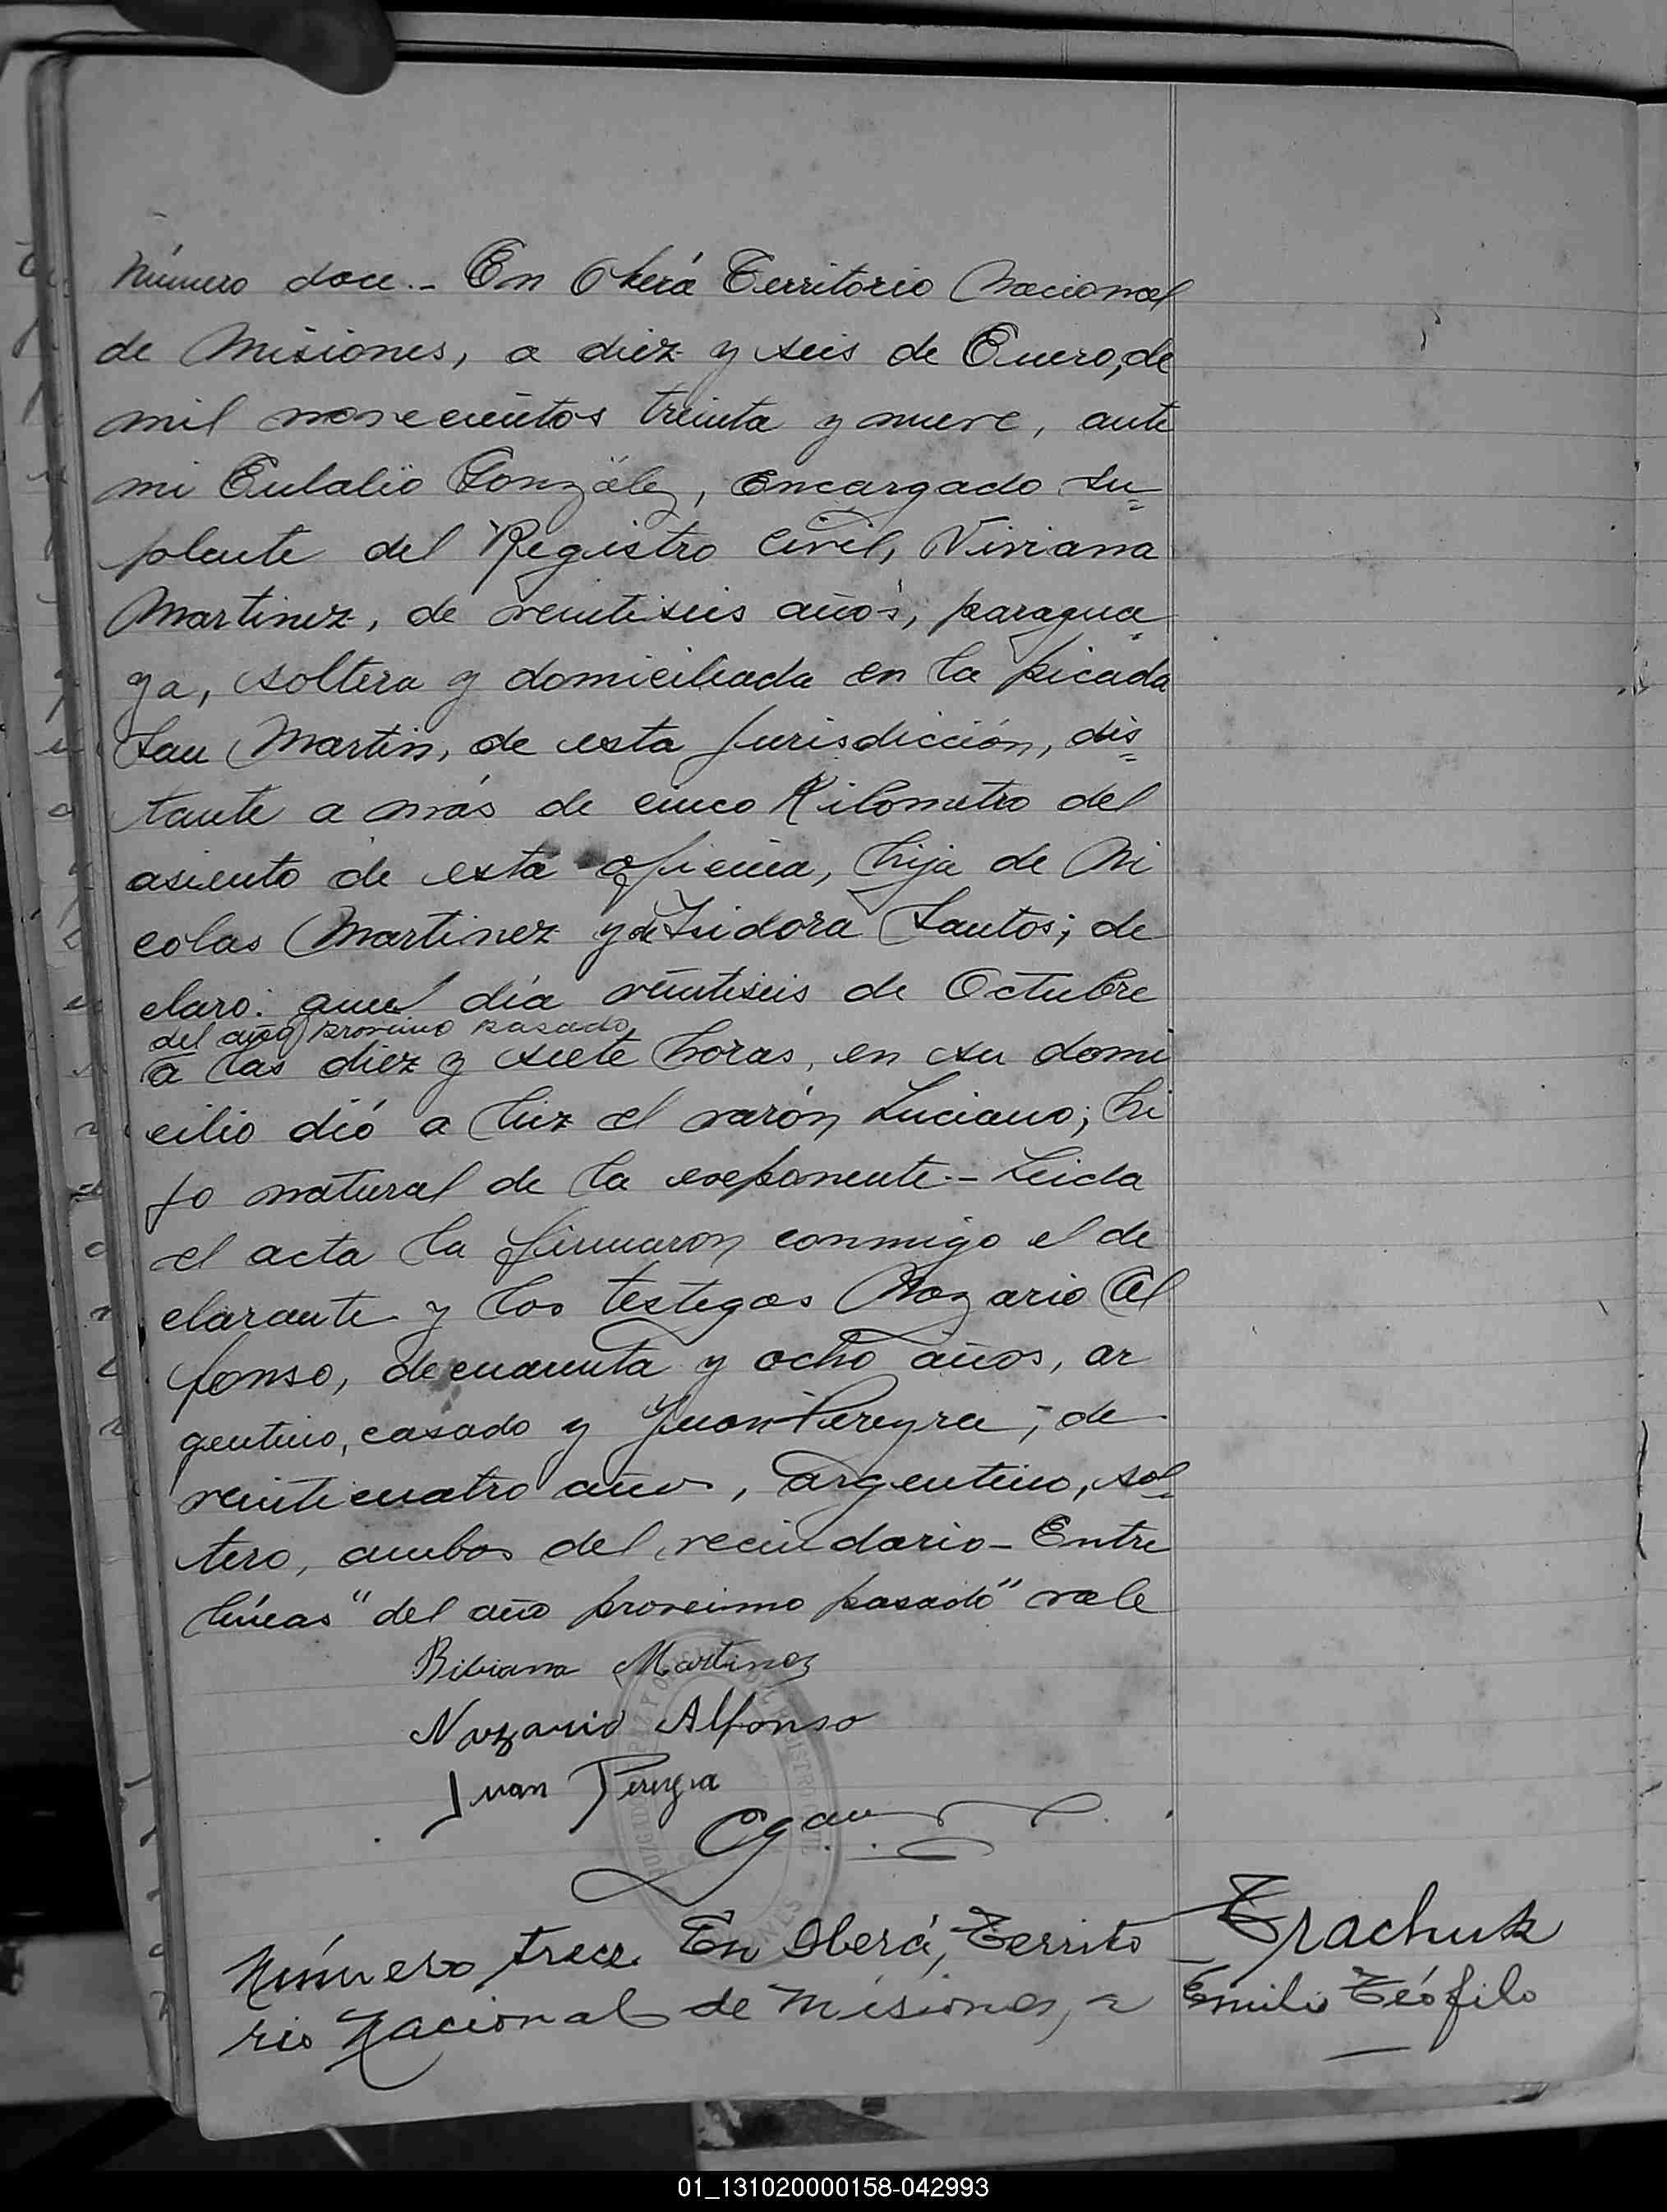 Número doce.- En Oberá Territorio Nacional
de Misiones, a diez y seis de Enero, de
mil novecientos treinta y nueve, ante
mi Eulalio González, Encargado Su=
plente del Registro Civil, Viviana
Martinez, de veintiseis años, paragua-
ya, soltera y domiciliada en la picada
San Martin, de esta jurisdicción, dis=
tante a más de cinco Kilometro del
asiento de esta oficina, hija de Ni
colas Martinez y de Isidora Santos; de
claro: que el día veintiseis de Octubre
del año proximo pasado
a las diez y siete horas, en su domi
cilio dió a luz el varón Luciano; hi
jo natural de la exponente.- Leida
el acta la firmaron conmigo el de
clarante y los testigos Nazario Al
fonso, de cuarenta y ocho años, ar
gentino, casado y Juan Pereyra, de
veinticuatro años, argentino, sol=
tero, ambos del vecindario- Entre
líneas "del año proximo pasado" vale
Bibiana Martinez
Nazario Alfonso
Juan Pereyra
Número trece. En Oberá, Territo
rio Nacional de Misiones, a
Trachuk
Emilio Teófilo
01_131020000158-042993